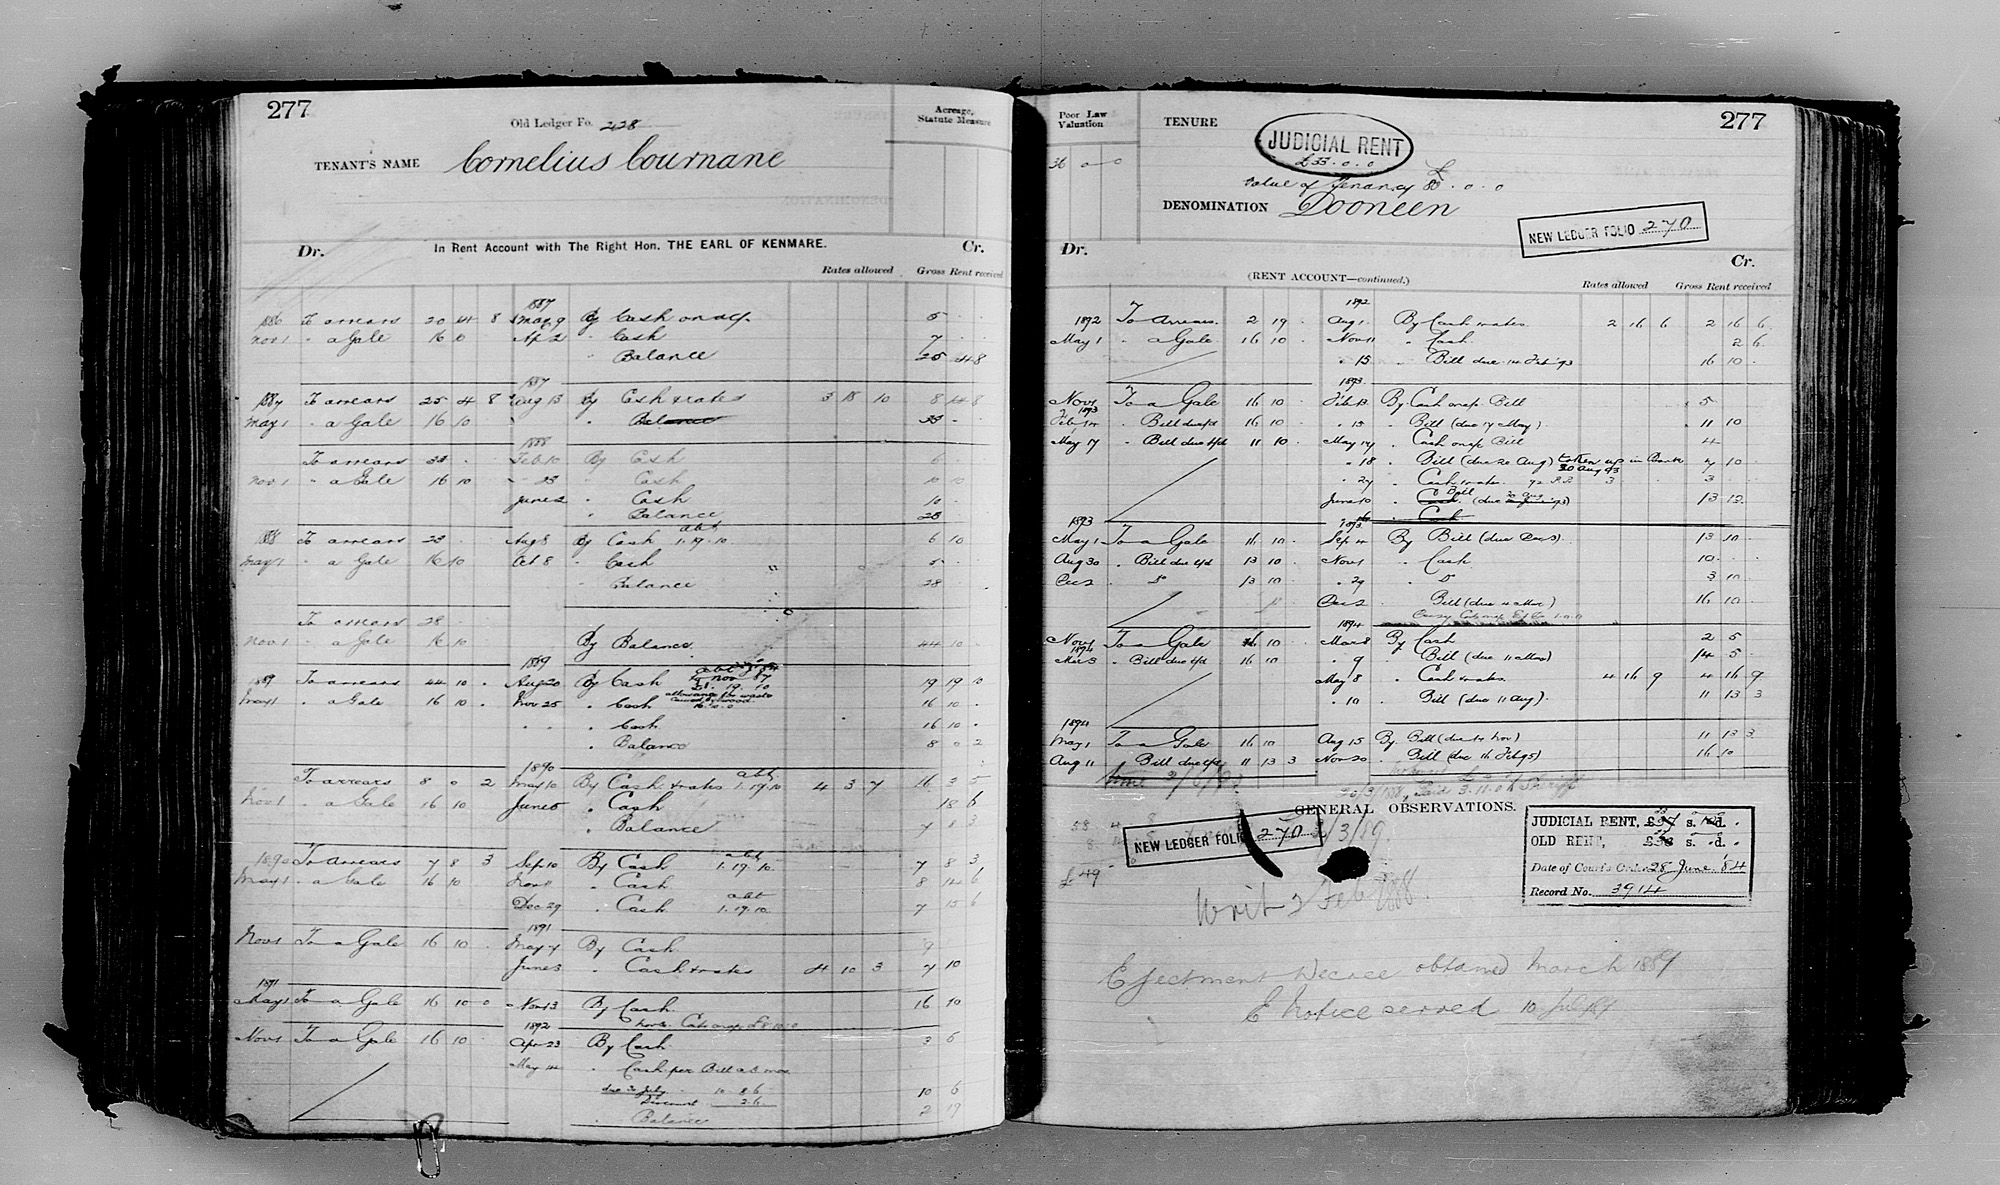 277
Old Ledger Fo. 228
Acreage, Statute Measure
TENANT'S NAME Cornelius Cournane
Dr. In Rent Account with The Right Hon. THE EARL OF KENMARE. Cr.
Rates allowed Gross Rent received
1887
1886 To arrears 20 14 8 May 9 By Cash on a/c 5
Nov 1 " a Gale 16 10 Ap 2 " Cash 7
" Balance 25 4 8
1887
1887 To arrears 25 4 8 Aug 13 By Cash & rates 3 18 10 8 14 8
May 1 " a Gale 16 10 " Balance 33
1888
To arrears 33 Feb 10 By Cash 6
Nov 1 " a Gale 16 10 " 23 " Cash 10 10
June 2 " Cash 10
" Balance 23
1888 To arrears 23 Aug 8 By Cash abt 1.19.10 6 10
May 1 " a Gale 16 10 Oct 8 " Cash 5
" Balance 28
To arrears 28
Nov 1 " a Gale 16 10 By Balance 44 10
1889
1889 To arrears 44 10 Aug 20 By Cash 19 19 10
allowance for waste
May 1 " a Gale 16 10 Nov 25 " Cash 16 10
" Cash 16 10
" Balance 8 0 2
1890
To arrears 8 0 2 May 10 By Cash & rates abt 1.19.10 4 3 7 16 3 5
Nov 1 " a Gale 16 10 June 5 " Cash 18 6
" Balance 7 8 3
1890 To Arrears 7 8 3 Sep 10 By Cash abt 1.19.10 7 8 3
May 1 " a Gale 16 10 Nov 11 " Cash 8 14 6
Dec 29 " Cash abt 1.19.10 7 15 6
1891
Nov 1 To a Gale 16 10 May 7 By Cash 9
June 3 " Cash & rates 4 10 3 7 10
1891
May 1 To a Gale 16 10 0 Nov 13 By Cash 16 10
1892
Nov 1 To a Gale 16 10 Apr 23 By Cash 3 5
May 14 " Cash per Bill at 3 mos
due 30 July 10 8 6
Discount 2.6 10 6
" Balance 2 19
277
Poor Law Valuation
36 0 0
TENURE
JUDICIAL RENT
£33.0.0
Value of Tenancy £ . 0 . 0
DENOMINATION Dooneen
NEW LEDGER FOLIO 270
Dr. Cr.
(RENT ACCOUNT—continued.)
Rates allowed Gross Rent received
1892
1892 To Arrears 2 19 Aug 1 By Cash & rates 2 16 6 2 16 6
May 1 " a Gale 16 10 Nov 11 " Cash 2 6
" 15 " Bill due 14 Feb '93 16 10
1893
Nov 1 To a Gale 16 10 Feb 13 By Cash on a/c Bill 5
1893
Feb 14 " Bill due pd 16 10 " 15 " Bill (due 17 May) 11 10
May 17 " Bill due pd 11 10 May 17 " Cash on a/c Bill 4
" 18 " Bill (due 20 Aug) taken up in Bank 30 Aug 93 7 10
" 27 " Cash & rates 3 3
June 10 " Bill 13 10
" Cash
1893
May 1 To a Gale 16 10 Sep 4 By Bill (due Dec 3) 13 10
Aug 30 " Bill due pd 13 10 Nov 1 " Cash 10
Dec 2 " Do 13 10 " 29 " Do 3 10
Dec 2 " Bill (due 4 Mar) 16 10
1894
Nov 1 To a Gale 16 10 Mar 8 By Cash 2 5
1894
Mar 3 " Bill due pd 16 10 " 9 " Bill (due 11 May) 14 5
May 8 " Cash & rates 4 16 9 4 16 9
" 10 " Bill (due 11 Aug) 11 13 3
1894
May 1 To a Gale 16 10 Aug 15 By Bill (due 14 Nov) 11 13 3
Aug 11 " Bill due pd 11 13 3 Nov 20 " Bill (due 16 Feb 95) 16 10
GENERAL OBSERVATIONS.
NEW LEDGER FOLIO 270
3/89
£49
Writ 2 Feb 1888
JUDICIAL RENT, £ s. d.
OLD RENT, £ s. d.
Date of Court's Order 28 June '84
Record No. 3914
Ejectment Decree obtained March 1889
E Notice served 10 July